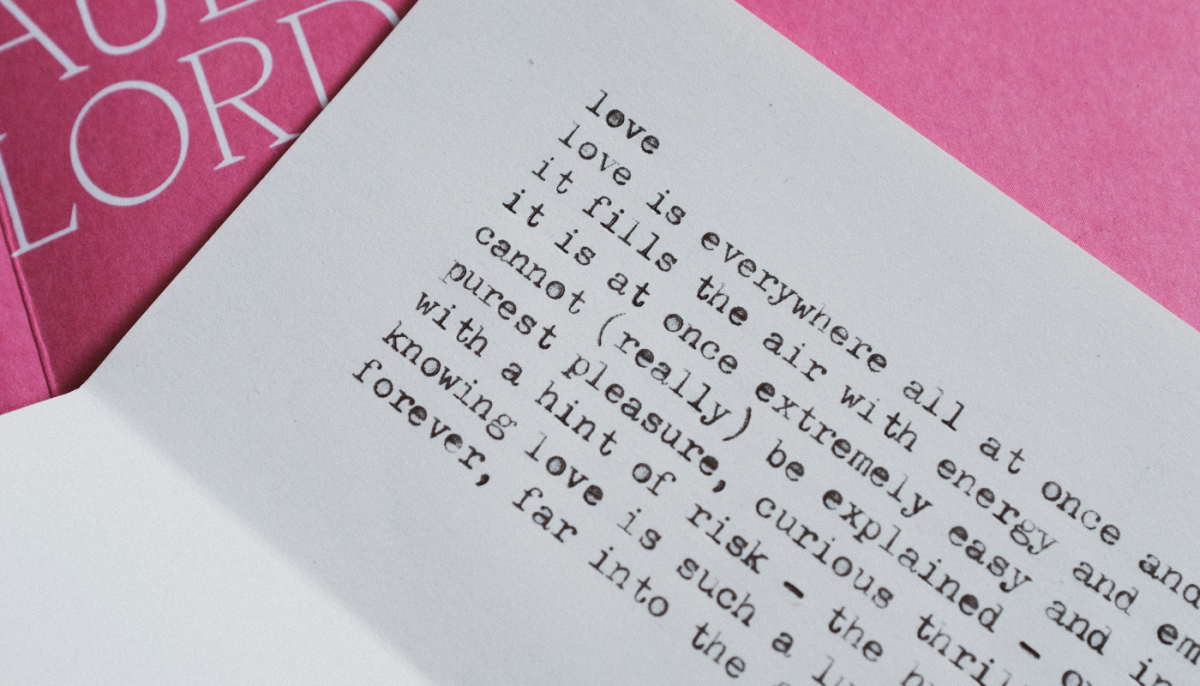 LORD
love
love is everywhere all at once and
it fills the air with energy and
it is at once extremely easy and
cannot (really) be explained –
purest pleasure, curious
with a hint of risk – the
knowing love is such a
forever, far into the